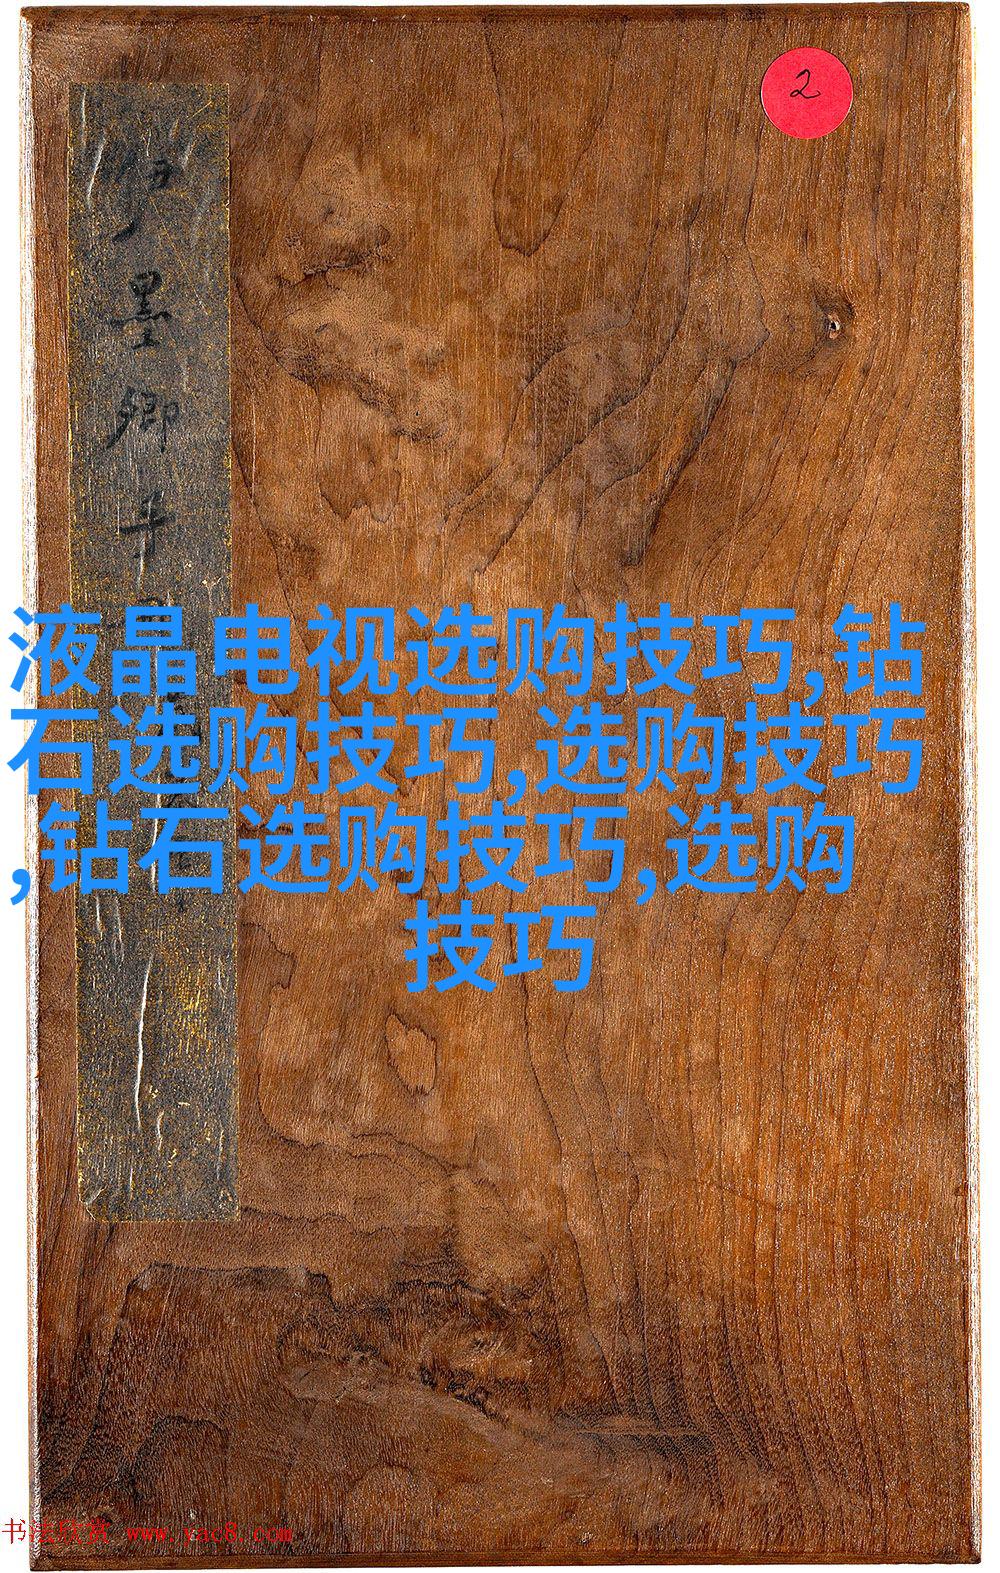 2
墨卿
液晶电视选购技巧,钻
石选购技巧,选购技巧
,钻石选购技巧,选购
技巧
书法欣赏 www.yac8.com